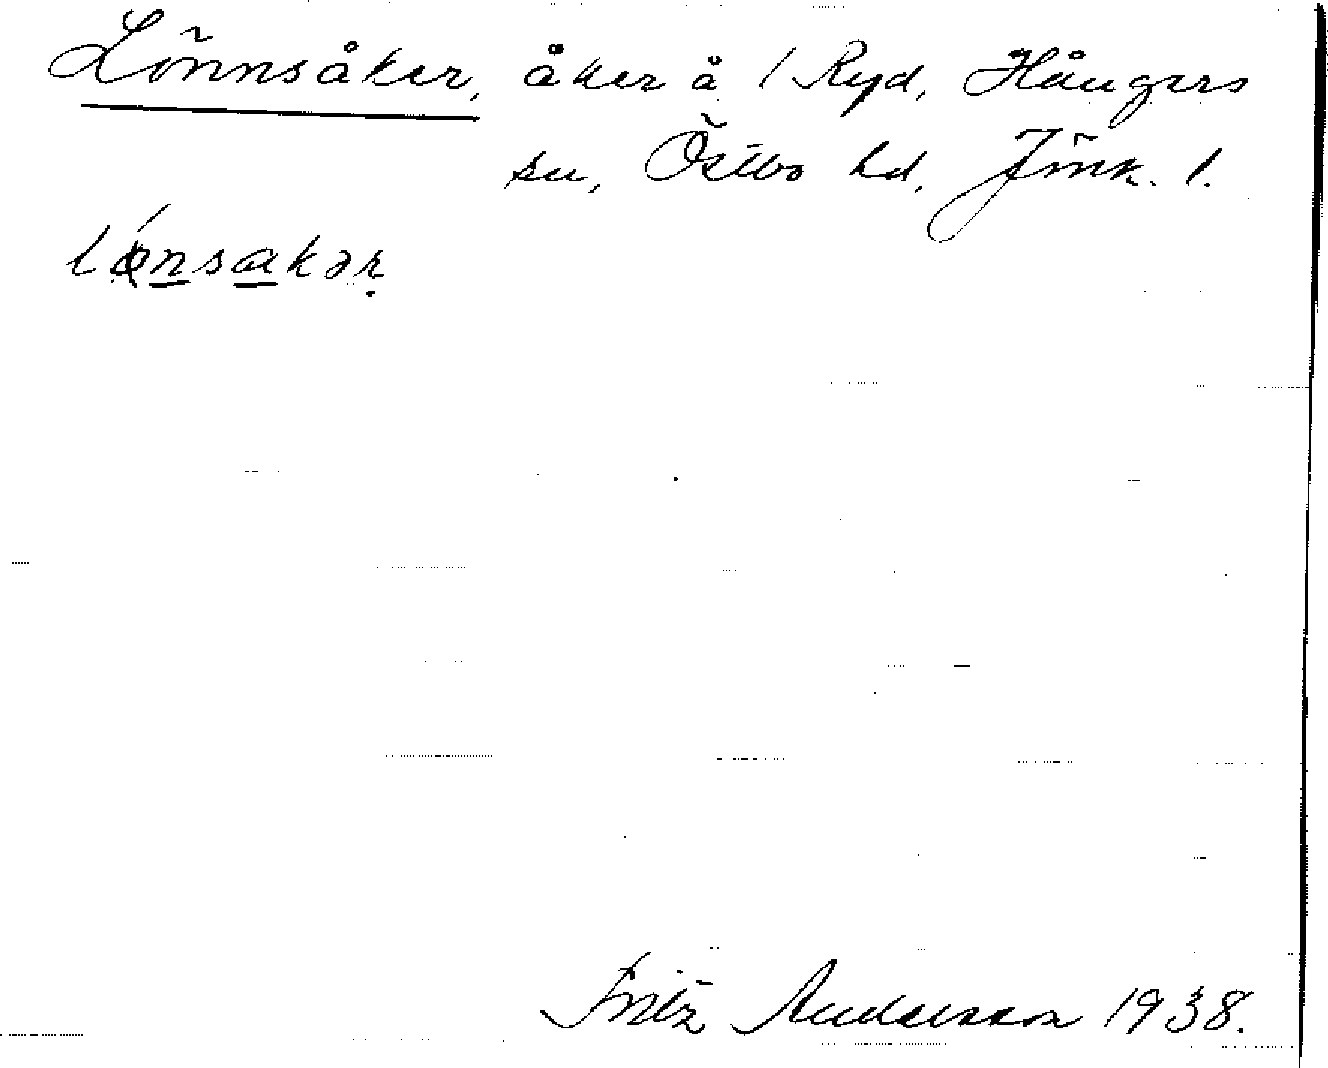 Lönnsåker, åker å 1 Ryd, Hångers
sn, Östbo hd, Jönk. l.
lǿnsakər
Fritz Andersson 1938.